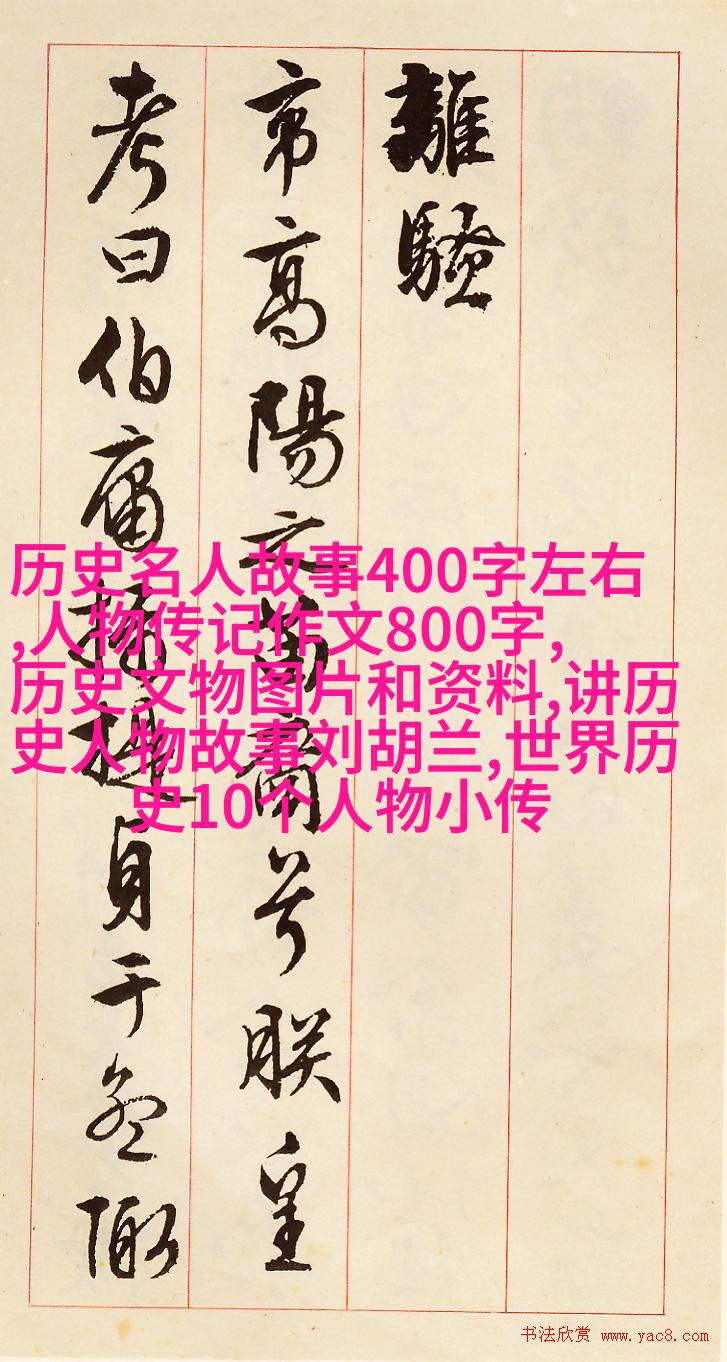 離騷
帝高陽之苗裔兮朕皇
考曰伯庸攝提貞于孟陬
历史名人故事400字左右
,人物传记作文800字,
历史文物图片和资料,讲历
史人物故事刘胡兰,世界历
史10个人物小传
书法欣赏 www.yac8.com